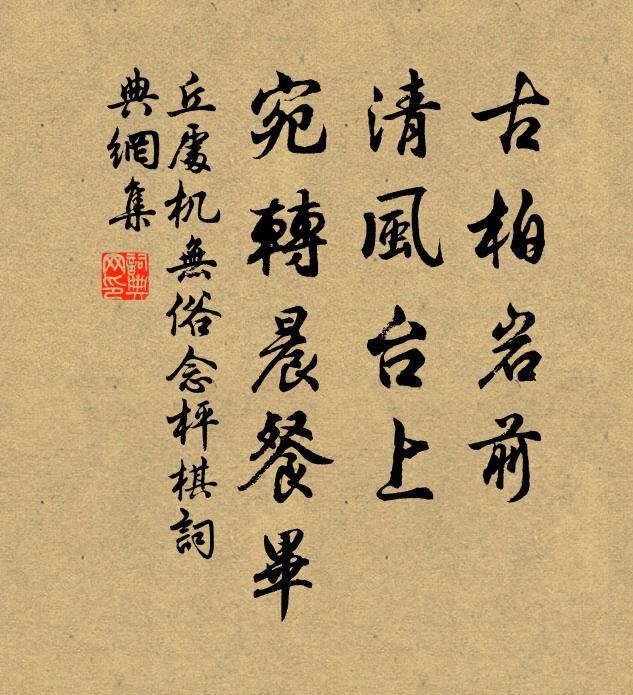 古柏岩前
清風台上
宛轉晨餐畢
丘處机無俗念枰棋詞
典網集
詞典
网印